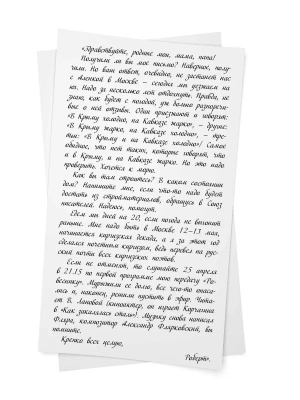 «Здравствуйте, родные мои, мама, папа!
Получили ли вы мое письмо? Наверное, полу-
чили. Но ваш ответ, очевидно, не застанет нас
с Аленкой в Москве – сегодня мы уезжаем на
юг. Надо за несколько лет отдохнуть. Правда, не
знаю, как будет с погодой, уж больно разноречи-
вые о ней отзывы. Одни приезжают и говорят:
«В Крыму холодно, на Кавказе жарко», – другие:
«В Крыму жарко, на Кавказе холодно», – тре-
тьи: «В Крыму и на Кавказе холодно»! Самое
обидное, что нет таких, которые говорят, что
и в Крыму, и на Кавказе жарко. Но это надо
проверить. Хочется к морю.
Как вы там строитесь? В каком состоянии
дом? Напишите мне, если что-то надо будет
достать из стройматериалов, обращусь в Союз
писателей. Надеюсь, помогут.
Едем мы дней на 20, если погода не выгонит
раньше. Мне надо быть в Москве 12–13 мая,
начинается киргизская декада, а я за этот год
сделался почетным киргизом, ведь перевел на рус-
ский почти всех киргизских поэтов.
Если не отменят, то слушайте 25 апреля
в 21.15 по первой программе мою передачу «Ро-
весники». Мурыжили ее долго, все чего-то опаса-
лись и, наконец, решили пустить в эфир. Чита-
ет В. Лановой (киноактер, он играет Корчагина
в «Как закалялась сталь»). Музыку снова написал
Фляра, композитор Александр Флярковский, вы
помните.
Крепко всех целую,
Роберт».